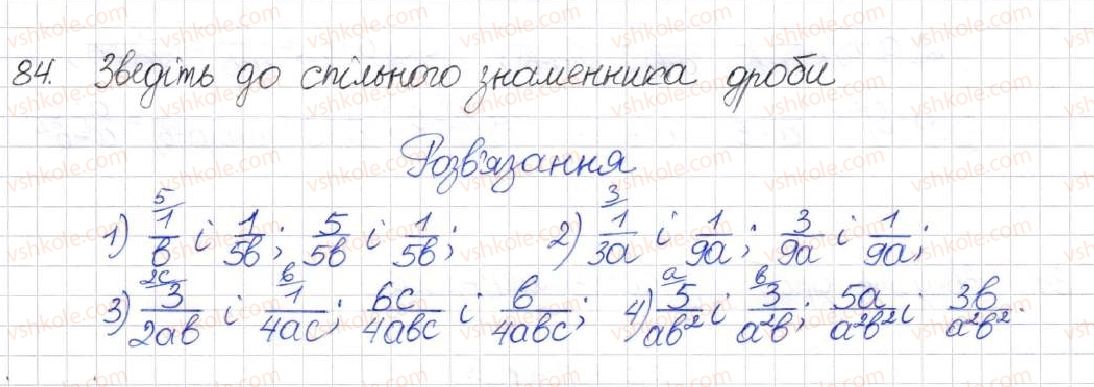 84. Зведіть до спільного знаменника дроби
Розв'язання
1) 5/ 1/в і 1/5в; 5/5в і 1/5в; 2) 3/ 1/3а і 1/9а; 3/9а і 1/9а;
3) 2с/ 3/2ав і в/ 1/4ас; 6с/4авс і в/4авс; 4) а/ 5/ав² і в/ 3/а²в; 5а/а²в² і 3в/а²в².
vshkole.com